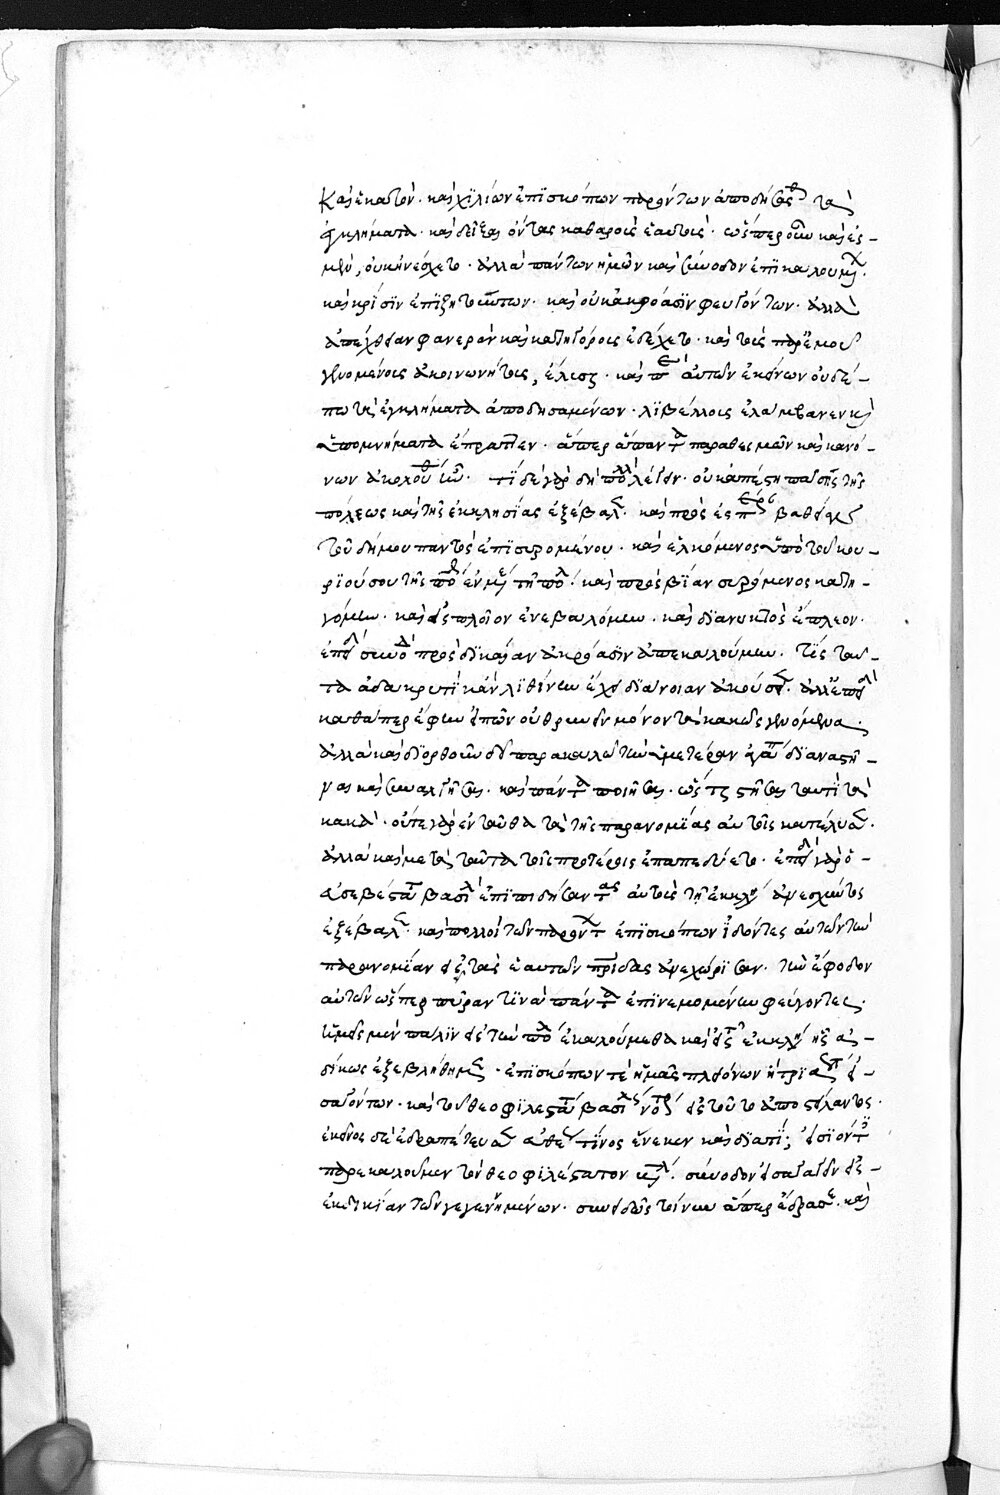 Καὶ ἑκατὸν· καὶ χϊλίων ἐπϊσκόπων παρόντων ἀποδύσασθ τὰ
ἐγκλήματα· καὶ δεῖξαι ὄντας καθαροὺς ἑαυτοὺς· ὥσπερ οὖν καὶ ἐσ-
μὲν, οὐκ ἠνέσχετο· ἀλλὰ πάντων ἡμῶν καὶ σύνοδον ἐπϊκαλουμέν·
καὶ κρίσϊν ἐπϊζητούντων· καὶ οὐκ ἀκρόασϊν φευγόντων· ἀλλὰ
ἀπέχθειαν φανερὰν καὶ κατηγόρους ἐδέχετο· καὶ τοὺς παρ' ἐμοῦ
γενομένους ἀκοινωνήτους, ἔλυσε· καὶ παρ' αὐτῶν ἐκείνων οὐδέ-
πω τὰ ἐγκλήματα ἀποδυσαμένων· λϊβέλλους ἐλάμβανεν καὶ
ὑπομνήματα ἔπραττεν· ἅπερ ἅπαντα παρὰ θεσμὸν καὶ κανό-
νων ἀκολουθίαν· τί δὲ γὰρ δεῖ πολλὰ λέγειν· οὐκ ἀπέστη πάσης τῆς
πόλεως καὶ τῆς ἐκκλησίας ἐξέβαλε· καὶ πρὸς ἑσπέραν βαθεῖαν
τοῦ δήμου παντὸς ἐπϊσυρομένου· καὶ ἑλκόμενος ὑπὸ τοῦ κου-
ρϊούσου τῆς πόλεως ἐν μέσῃ τῇ πόλει καὶ πρὸς βίαν συρόμενος κατη-
γόμην· καὶ εἰς πλοῖον ἐνεβαλόμην· καὶ δϊὰ νυκτὸς ἔπλεον·
ἐπειδὴ σύνοδον πρὸς δϊκαίαν ἀκρόασϊν ἀπεκαλούμην· τίς ταῦ-
τα ἀδακρυτὶ κἂν λϊθίνην ἔχῃ δϊάνοιαν ἀκούσει· ἀλλ' ἐπειδὴ
καθάπερ ἔφην εἰπὼν οὐ θρηνεῖν μόνον τὰ κακῶς γενόμενα·
ἀλλὰ καὶ δϊορθοῦν δεῖ παρακαλῶ τὴν ὑμετέραν ἀγάπην δϊαναστῆ-
ναι καὶ συναλγῆσαι· καὶ πάντα ποιῆσαι· ὥστε στῆσαι ταύτῃ τὰ
κακὰ· οὔτε γὰρ ἐνταῦθα τὰ τῆς παρανομίας αὐτοῖς κατέλυσεν·
ἀλλὰ καὶ μετὰ ταῦτα τοῖς προτέροις ἐπαπεδύετο· ἐπειδὴ γὰρ ὁ
εὐσεβέστατος βασιλεὺς ἐπϊπηδήσαντας αὐτοὺς τῇ ἐκκλησίᾳ ἀναισχύντως
ἐξέβαλε· καὶ πολλοὶ τῶν παρόντων ἐπϊσκόπων ἰδόντες αὐτῶν τὴν
παρανομίαν εἰς τὰς ἑαυτῶν πατρίδας ἀνεχώρησαν· τὴν ἔφοδον
αὐτῶν ὥσπερ πυράν τϊνα πάντα ἐπϊνεμομένην φεύγοντες·
ἡμεῖς μὲν πάλϊν εἰς τὴν πόλιν ἐκαλούμεθα καὶ εἰς τὴν ἐκκλησίαν ἧς ἀ-
δίκως ἐξεβλήθημεν· ἐπϊσκόπων τὲ ἡμᾶς πλειόνων ἢ τρϊάκοντα εἰ-
σαγόντων· καὶ τοῦ θεοφϊλεστάτου βασιλέως νοτάριον εἰς τοῦτο ἀποστείλαντος·
ἐκεῖνος δὲ ἐδραπέτευσεν αὐθέως τίνος ἕνεκεν καὶ δϊατί; εἰσϊόντες
παρεκαλοῦμεν τὸν θεοφϊλέστατον κύριον· σύνοδον εἰσαγαγεῖν εἰς
ἐκδϊκίαν τῶν γεγενημένων· συνειδὼς τοίνυν ἅπερ ἔδρασε· καὶ